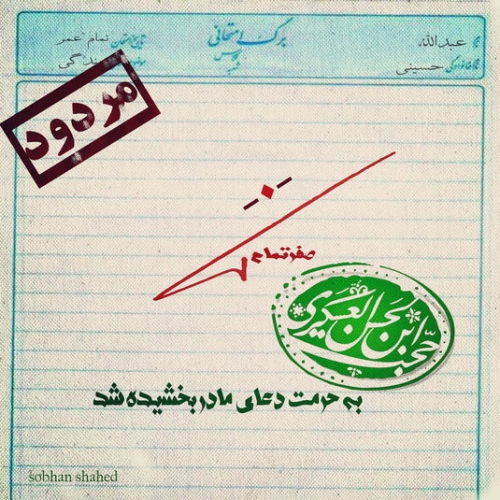 نام عبدالله
برگ امتحانی
تاریخ امتحان تمام عمر
نام خانوادگی حسینی
درس
زندگی
مردود
صفر تمام
حجت ابن الحسن العسکری
به حرمت دعای مادر بخشیده شد
sobhan shahed